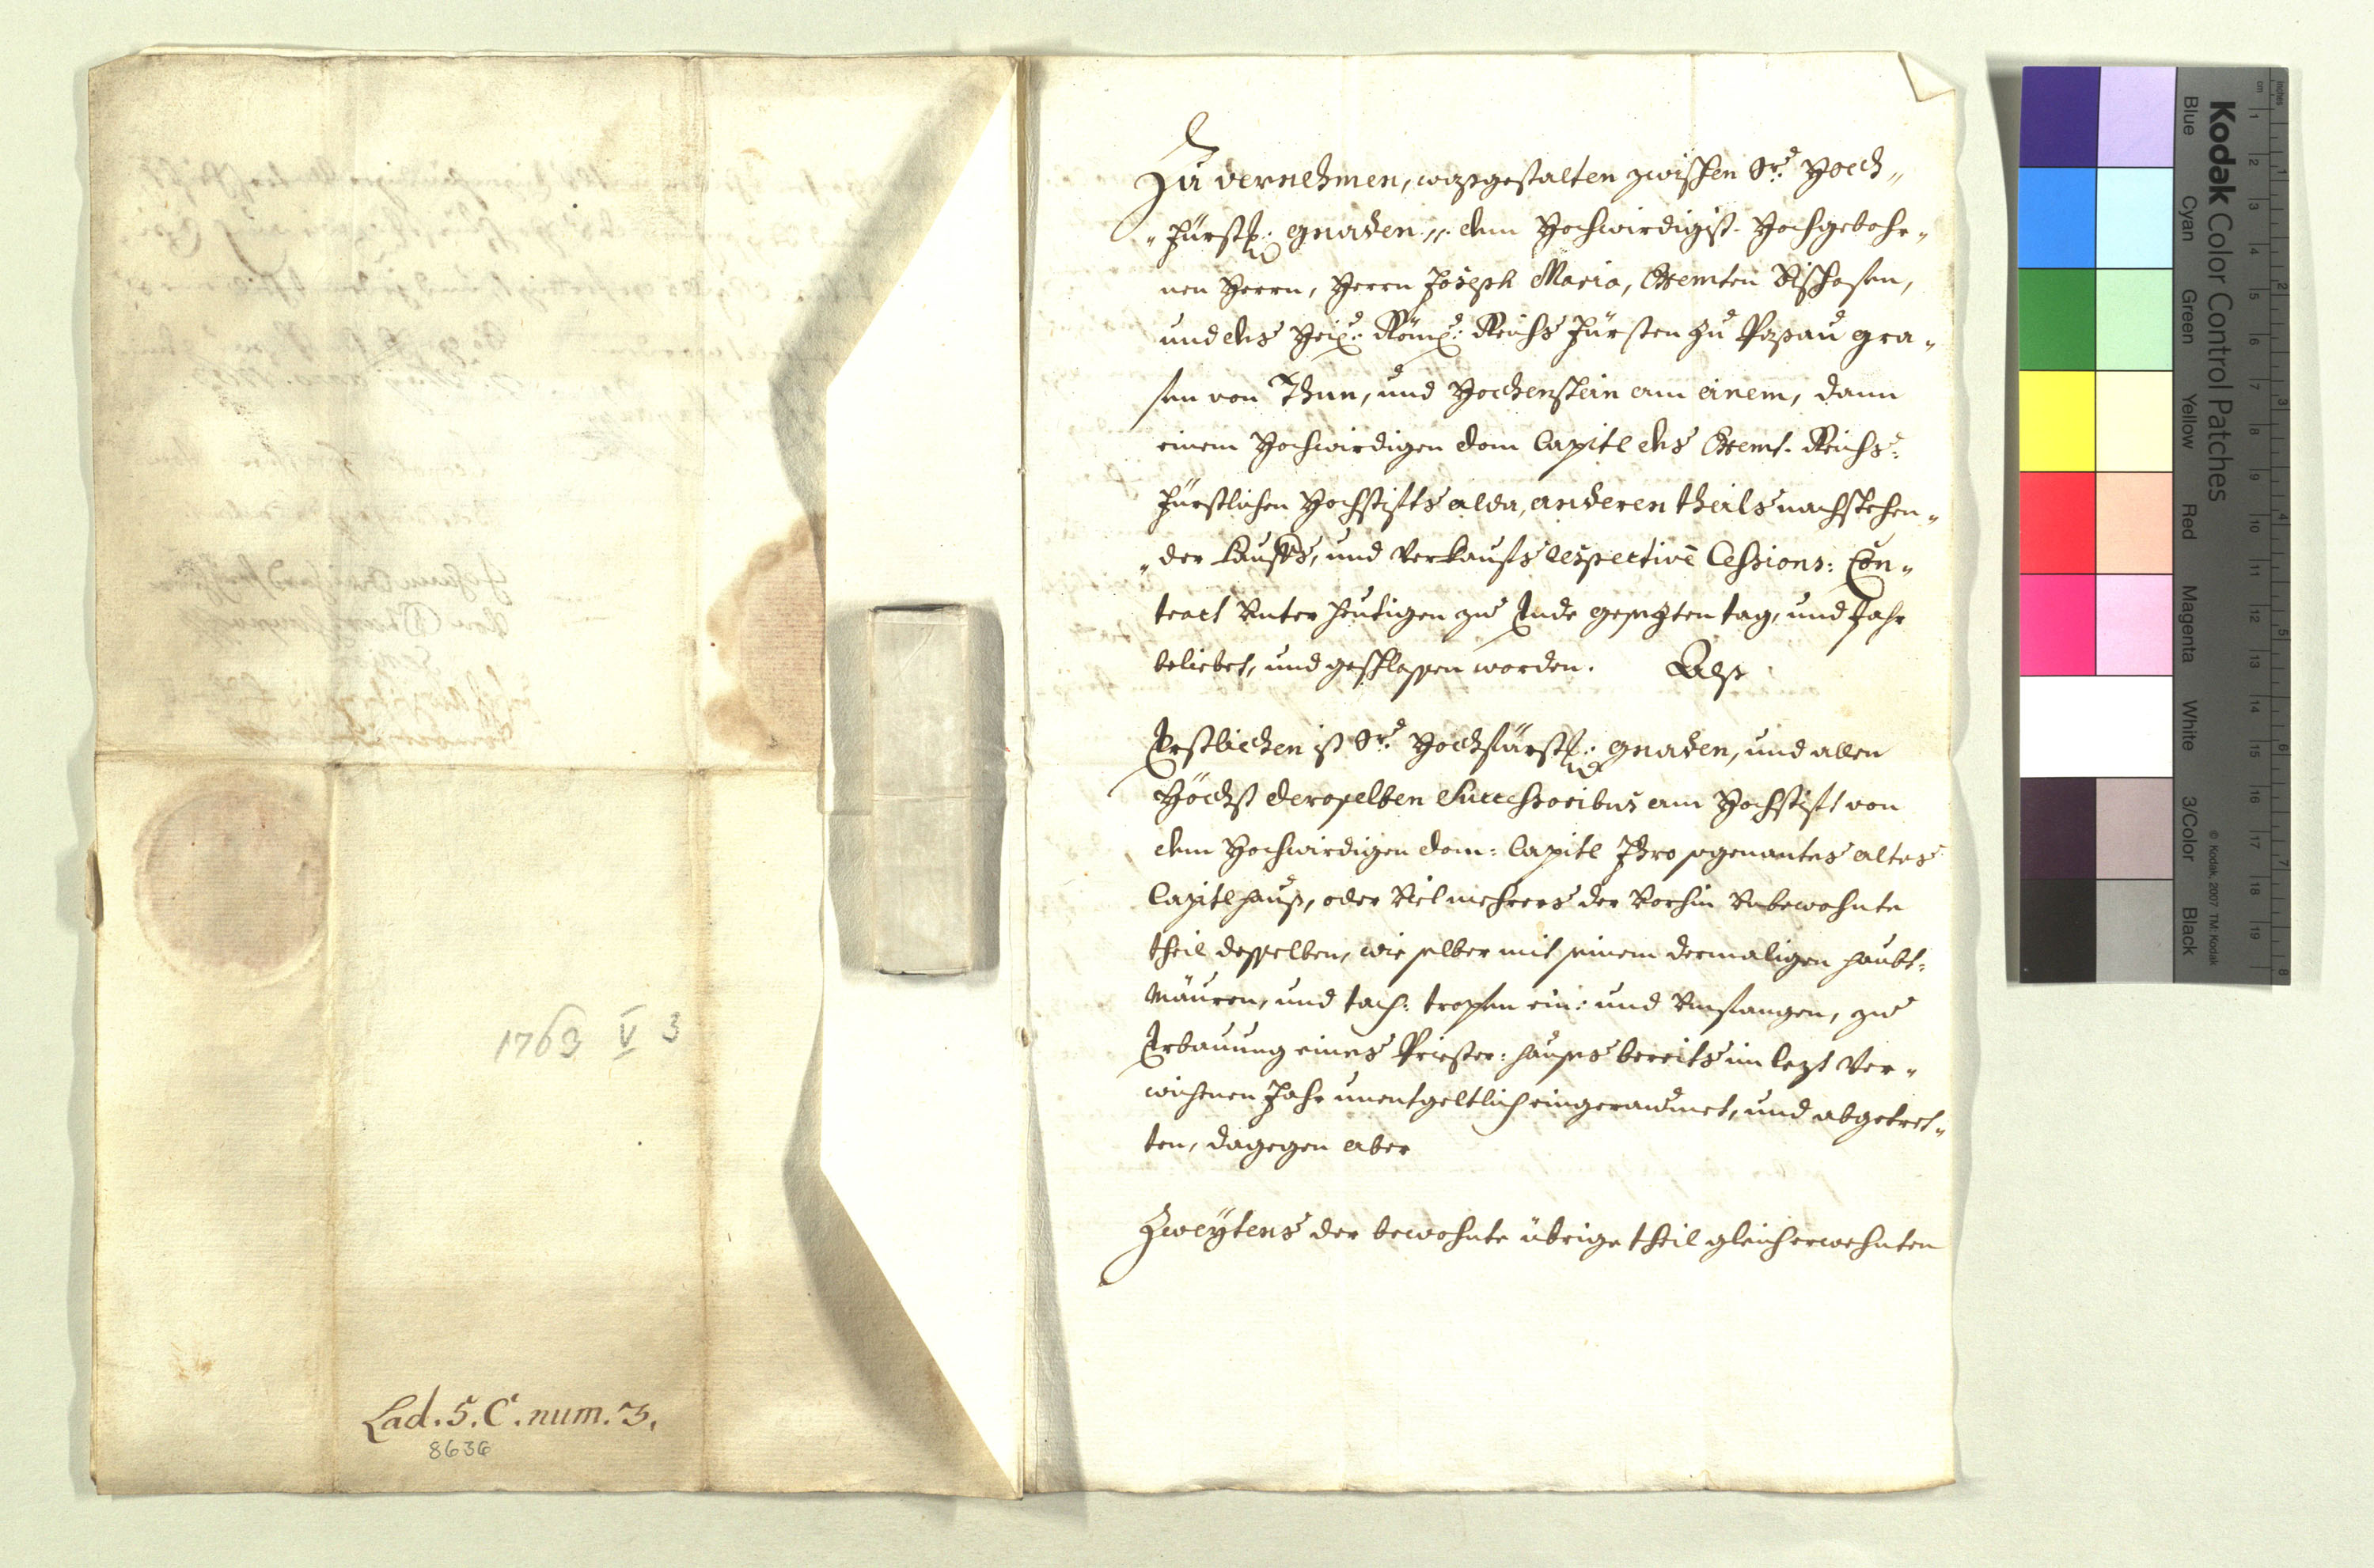 1763 V 3
Lad. 5. C. num. 3.
8636
Zu vernehmen, wasgestalten zwischen Sr. Hoch„
„Fürstl: gnaden „ dem Hochwirdigist- Hochgebohr„
nen Herrn, Herrn Joseph Maria, Exemten Bischofen,
und des Heil: Röm: Reichs Fürsten zu Passau gra„
fen von Thun, und Hochenstein am einem, dann
einem Hochwirdigen dom Capitl des Exemt- Reichs:
Fürstlichen Hochstifts alda, anderen theils nachstehen„
„der Kaufs, und Verkaufs respective Cessions: Con„
tract Unter heutigen zu Ende gesezten tag, und Jahr
beliebet, und geschlossen worden. Alß
Erstlichen ist Sr. Hochfürstl: gnaden, und allen
Höchst deroselben Successoribus am Hochstift von
dem Hochwirdigen dom: Capitl Ihro sogenantes altes
Capitlhauß, oder Vielmehrers der Vorhin Unbewohnte
theil desselben, wie selber mit seinem dermaligen haubt:
Mäuren, und tach: tropfen ein: und Umfangen, zu
Erbauung eines Priester: hauses bereits im lezt Ver„
wichenen Jahr unentgeltlich eingeraumet, und abgetret„
ten, dagegen aber
Zweytens der bewohnte übrige theil gleich erwehnten
Kodak Color Control Patches
Blue Cyan Green Yellow Red Magenta White 3/Color Black
© Kodak, 2007 TM: Kodak
inches 1 2 3 4 5 6 7 8
cm 1 2 3 4 5 6 7 8 9 10 11 12 13 14 15 16 17 18 19